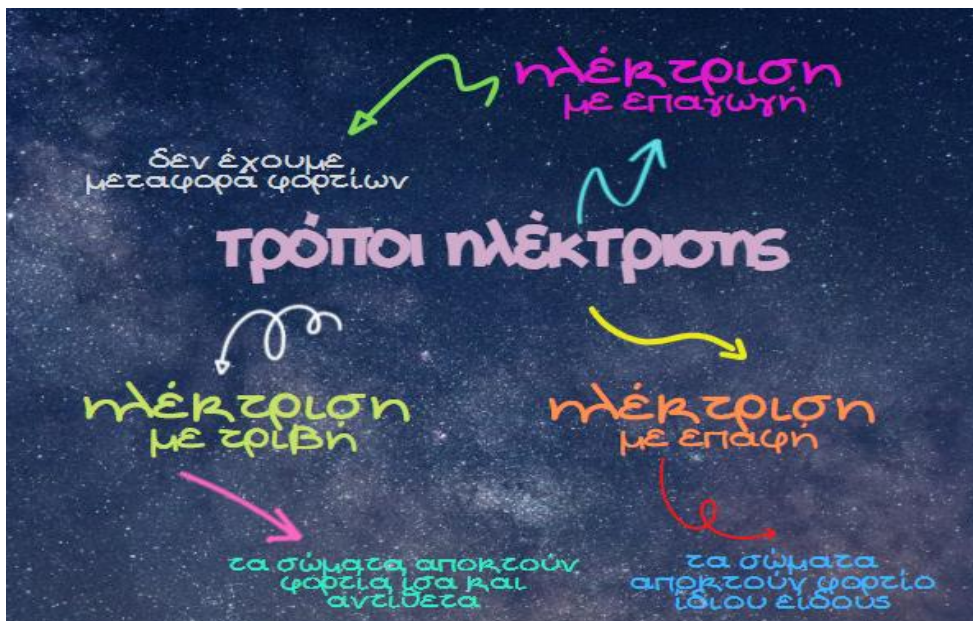 ηλέκτριση
με επαγωγή
δεν έχουμε
μεταφορά φορτίων
τρόποι ηλέκτρισης
ηλέκτριση
με τριβή
ηλέκτριση
με επαφή
τα σώματα αποκτούν
φορτία ίσα και
αντίθετα
τα σώματα
αποκτούν φορτίο
ίδιου είδους